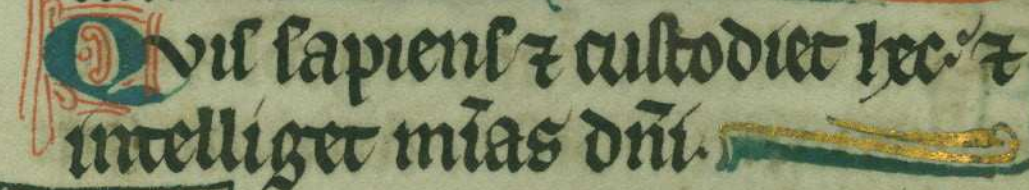 Quis sapiens ⁊ custodiet hec: ⁊
intelliget mīas dn̄i.